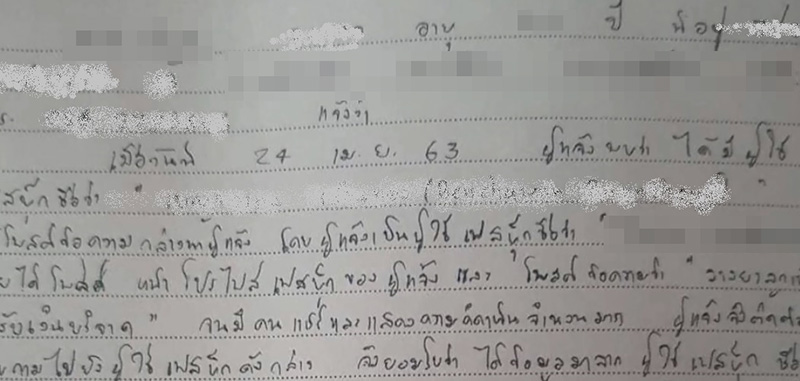 อายุ ปี ที่อยู่
แจ้งว่า
เมื่อวันที่ 24 เม.ย. 63 ผู้แจ้งพบว่า ได้มีผู้ใช้
ชื่อว่า "
โพสต์ข้อความกล่าวหาผู้แจ้ง โดยผู้แจ้งเป็นผู้ใช้เฟสบุ๊กชื่อว่า "
ได้โพสต์ หน้าโปรไฟล์เฟสบุ๊กของผู้แจ้ง และ โพสต์ข้อความว่า "
เงินบริจาค" จนมีคนแชร์และแสดงความคิดเห็นจำนวนมาก ผู้แจ้งจึงติดต่อ
ถามไปยังผู้ใช้เฟสบุ๊กดังกล่าว จึงยอมรับว่า ได้ข้อมูลมาจาก ผู้ใช้เฟสบุ๊ก ชื่อ